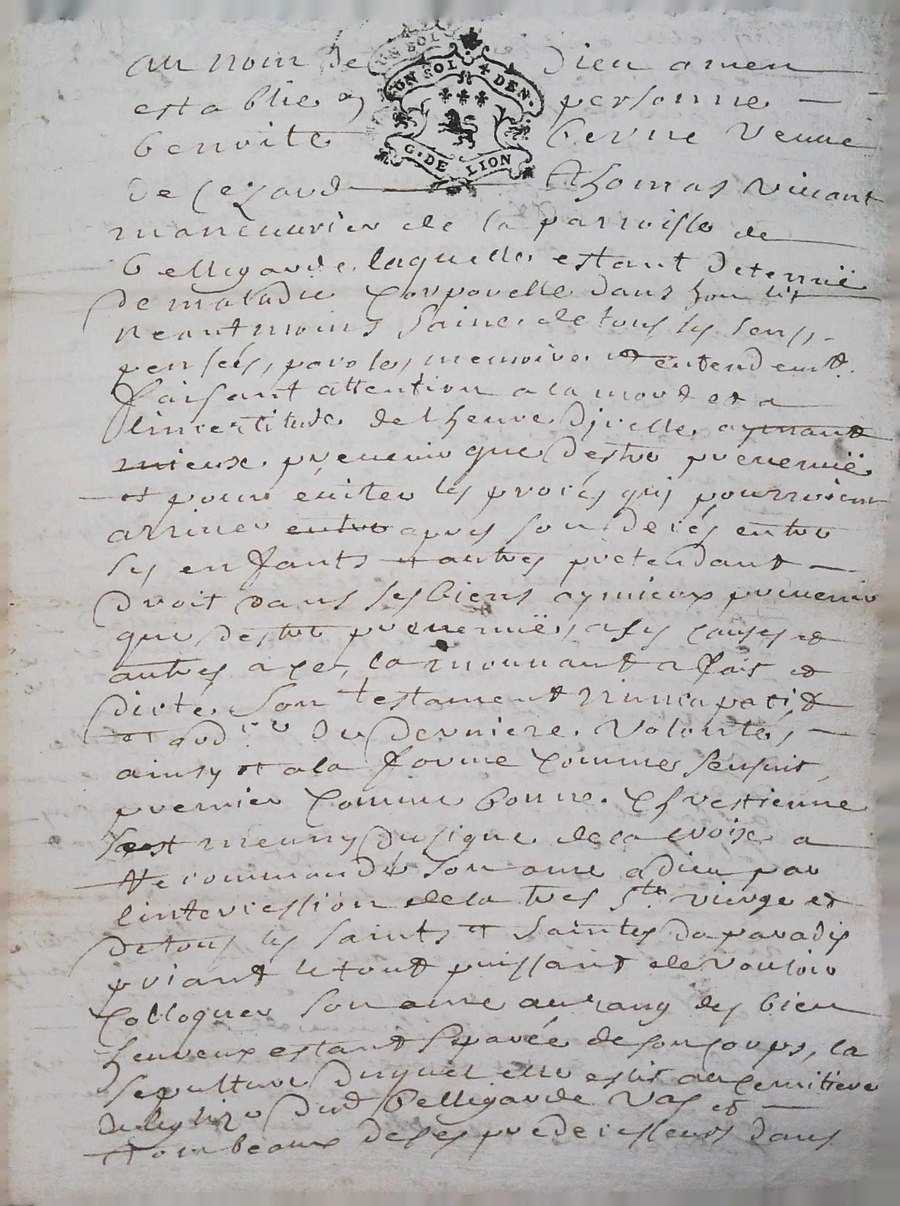 au nom de Dieu amen
UN SOL 4 DEN.
G. DE LION
establie en personne
benoite berne veuve
de Thomas vivant
manouvrier de la parroisse de
bellegarde, laquelle estant detenuë
de maladie corporelle dans son lit
neantmoins saine de tous ses sens,
pensées, paroles, memoire et entendemt.
faisant attention a la mort et a
l'incertitude de l'heure d'jcelle, aymant
mieux prevenir que destre prevenuë
et pour eviter les procés qui pourroient
arriver entre apres son decés entre
ses enfants et autres pretendant
droit dans ses biens aymieux prevenir
que destre prevenuë, a ses causes et
autres a ce la mouvant a fait et
dicté son testament nuncupatif
et ordre de derniere volonté,
ainsy et a la forme comme sensuit,
premier comme bonne chrestienne
sest munny du signe de la croix a
recommandé son ame a dieu par
lintercession de la tres ste. vierge et
de tous les saints et saintes du paradis
priant le tout puissant de vouloir
colloquer son ame au rang des bien
heureux estant separée de son corps, la
sepulture duquel elle eslit au cemitiere
de leglize dud bellegarde vas et
tombeaux de ses predecesseurs dans